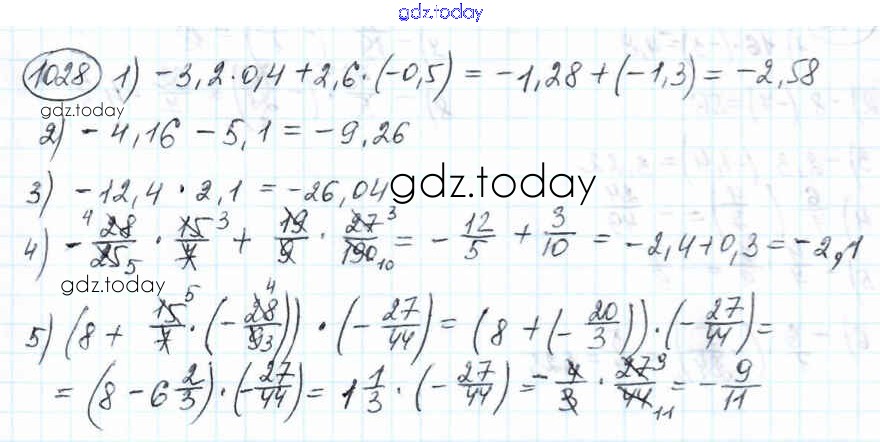 gdz.today
1028 1) -3,2·0,4+2,6·(-0,5) = -1,28+(-1,3) = -2,58
gdz.today
2) -4,16 - 5,1 = -9,26
3) -12,4 · 2,1 = -26,04
gdz.today
4) - 4 28/25 5 · 15/7 3 + 19/9 · 27/190 3 10 = - 12/5 + 3/10 = -2,4+0,3 = -2,1
gdz.today
5) (8 + 15/7 5 · (- 28/9 4 3)) · (- 27/44) = (8 + (- 20/3)) · (- 27/44) =
= (8 - 6 2/3) · (- 27/44) = 1 1/3 · (- 27/44) = - 4/3 · 27/44 9 11 = - 9/11